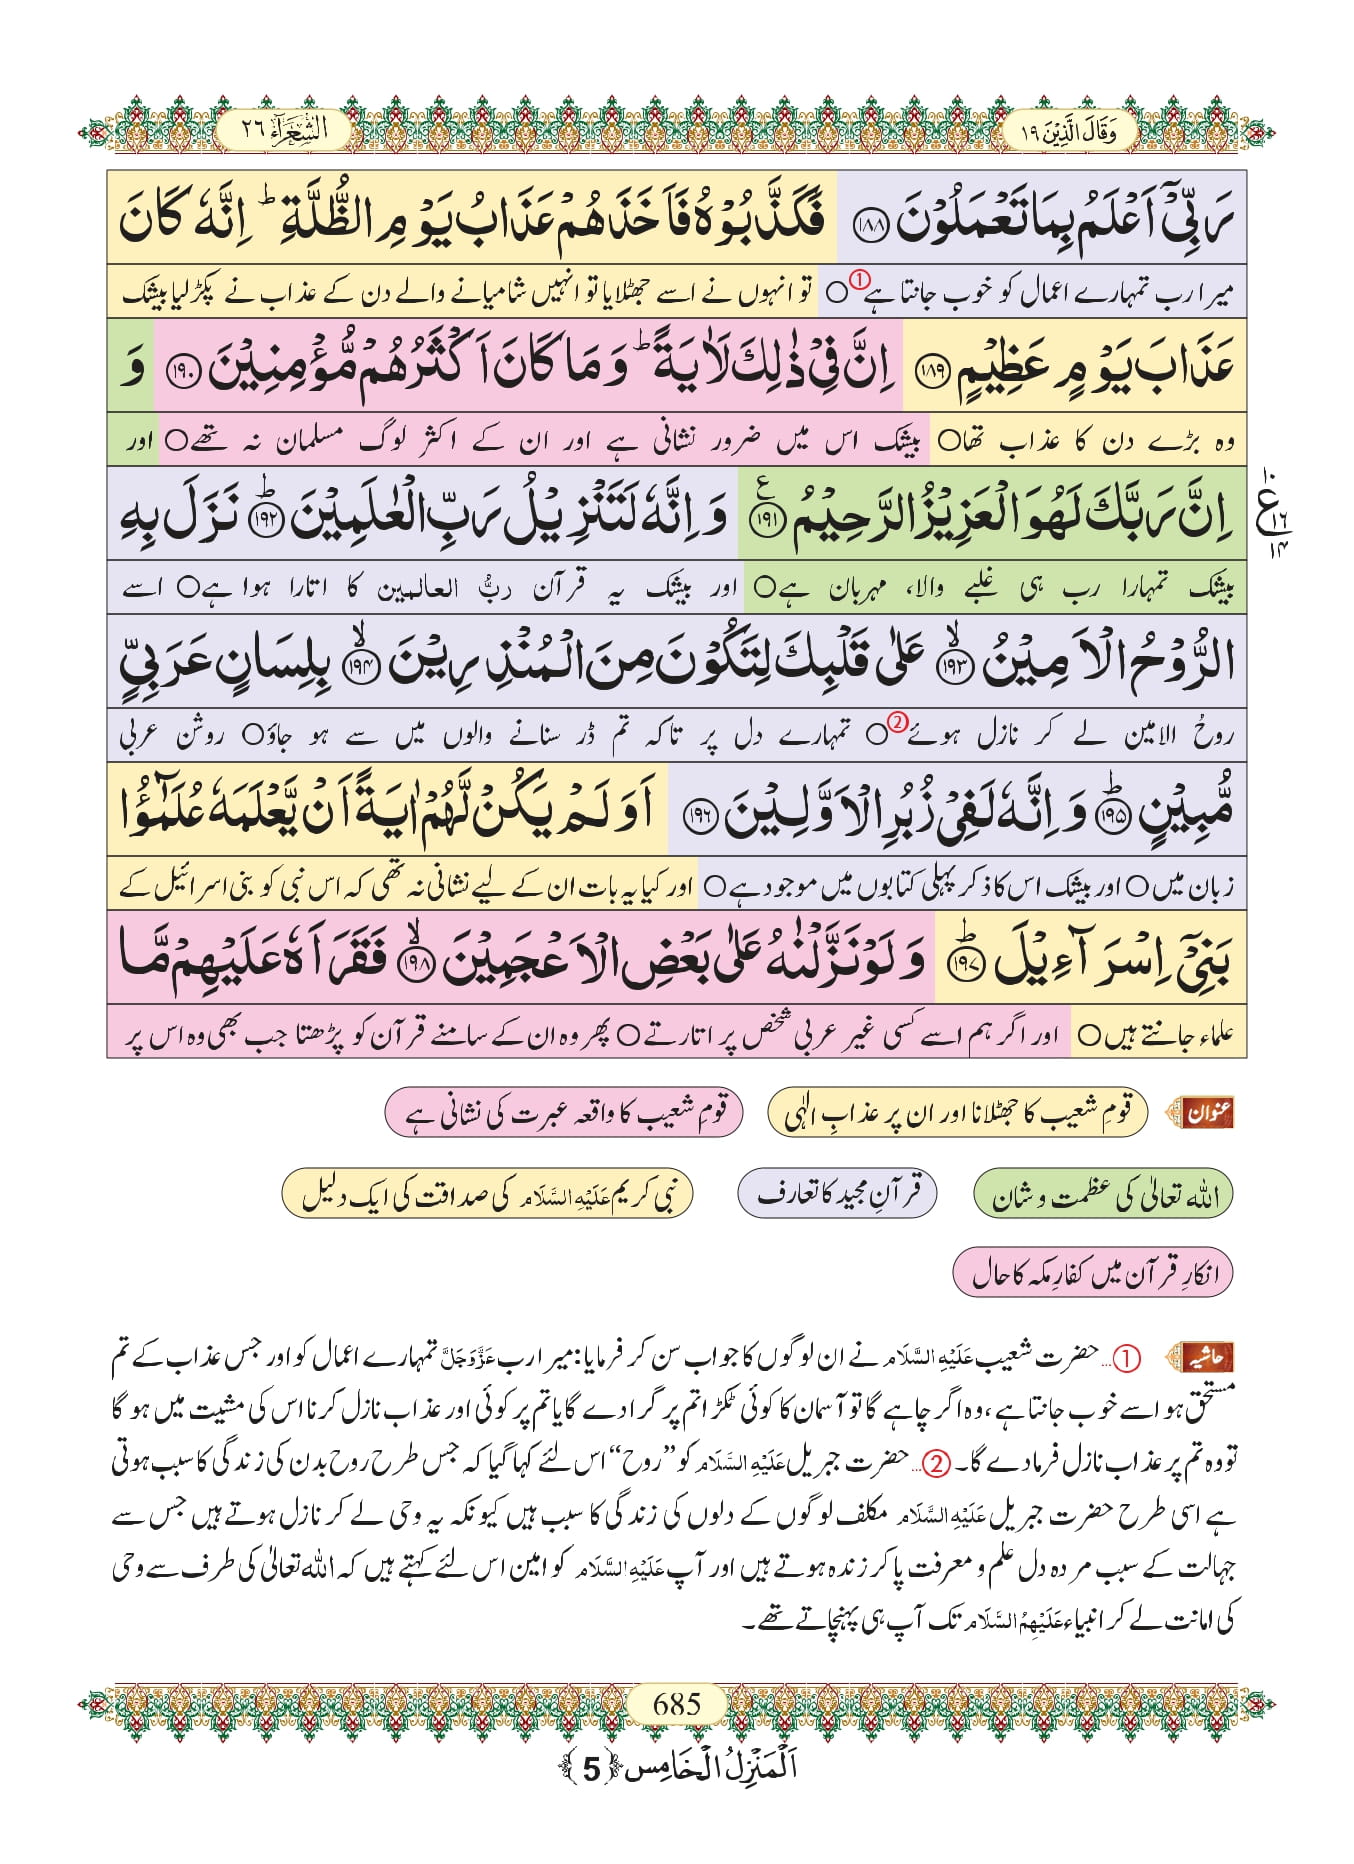 وَقَالَ الَّذِیْنَ ۱۹
الشُّعَرَآء ۲۶
رَبِّیْۤ اَعْلَمُ بِمَا تَعْمَلُوْنَ ﴿۱۸۸﴾ فَكَذَّبُوْهُ فَاَخَذَهُمْ عَذَابُ یَوْمِ الظُّلَّةِ ؕ اِنَّهٗ كَانَ
میرا رب تمہارے اعمال کو خوب جانتا ہے① ○ تو انہوں نے اسے جھٹلایا تو انہیں شامیانے والے دن کے عذاب نے پکڑلیا بیشک
عَذَابَ یَوْمٍ عَظِیْمٍ ﴿۱۸۹﴾ اِنَّ فِیْ ذٰلِكَ لَاٰیَةً ؕ وَ مَا كَانَ اَكْثَرُهُمْ مُّؤْمِنِیْنَ ﴿۱۹۰﴾ وَ
وہ بڑے دن کا عذاب تھا ○ بیشک اس میں ضرور نشانی ہے اور ان کے اکثر لوگ مسلمان نہ تھے ○ اور
اِنَّ رَبَّكَ لَهُوَ الْعَزِیْزُ الرَّحِیْمُ ﴿۱۹۱﴾ ع وَ اِنَّهٗ لَتَنْزِیْلُ رَبِّ الْعٰلَمِیْنَ ؕ﴿۱۹۲﴾ نَزَلَ بِهِ
۱۰ ع ۱۶ ۱۴
بیشک تمہارا رب ہی غلبے والا، مہربان ہے ○ اور بیشک یہ قرآن ربُّ العالمین کا اتارا ہوا ہے ○ اسے
الرُّوْحُ الْاَمِیْنُ ۙ﴿۱۹۳﴾ عَلٰی قَلْبِكَ لِتَكُوْنَ مِنَ الْمُنْذِرِیْنَ ۙ﴿۱۹۴﴾ بِلِسَانٍ عَرَبِیٍّ
روحُ الامین لے کر نازل ہوئے② ○ تمہارے دل پر تاکہ تم ڈر سنانے والوں میں سے ہو جاؤ ○ روشن عربی
مُّبِیْنٍ ؕ﴿۱۹۵﴾ وَ اِنَّهٗ لَفِیْ زُبُرِ الْاَوَّلِیْنَ ﴿۱۹۶﴾ اَوَ لَمْ یَكُنْ لَّهُمْ اٰیَةً اَنْ یَّعْلَمَهٗ عُلَمٰٓؤُا
زبان میں ○ اور بیشک اس کا ذکر پہلی کتابوں میں موجود ہے ○ اور کیا یہ بات ان کے لیے نشانی نہ تھی کہ اس نبی کو بنی اسرائیل کے
بَنِیْۤ اِسْرَآءِیْلَ ؕ﴿۱۹۷﴾ وَ لَوْ نَزَّلْنٰهُ عَلٰی بَعْضِ الْاَعْجَمِیْنَ ۙ﴿۱۹۸﴾ فَقَرَاَهٗ عَلَیْهِمْ مَّا
علماء جانتے ہیں ○ اور اگر ہم اسے کسی غیر عربی شخص پر اتارتے ○ پھر وہ ان کے سامنے قرآن کو پڑھتا جب بھی وہ اس پر
عنوان قومِ شعیب کا جھٹلانا اور ان پر عذابِ الٰہی قومِ شعیب کا واقعہ عبرت کی نشانی ہے
اللہ تعالیٰ کی عظمت و شان قرآنِ مجید کا تعارف نبی کریم عَلَیْهِ السَّلَام کی صداقت کی ایک دلیل
انکارِ قرآن میں کفارِ مکہ کا حال
حاشیہ ①... حضرت شعیب عَلَیْهِ السَّلَام نے ان لوگوں کا جواب سن کر فرمایا: میرا رب عَزَّوَجَلَّ تمہارے اعمال کو اور جس عذاب کے تم
مستحق ہو اسے خوب جانتا ہے، وہ اگر چاہے گا تو آسمان کا کوئی ٹکڑا تم پر گرا دے گا یا تم پر کوئی اور عذاب نازل کرنا اس کی مشیت میں ہو گا
تو وہ تم پر عذاب نازل فرما دے گا۔ ②... حضرت جبریل عَلَیْهِ السَّلَام کو ”روح“ اس لئے کہا گیا کہ جس طرح روح بدن کی زندگی کا سبب ہوتی
ہے اسی طرح حضرت جبریل عَلَیْهِ السَّلَام مکلف لوگوں کے دلوں کی زندگی کا سبب ہیں کیونکہ یہ وحی لے کر نازل ہوتے ہیں جس سے
جہالت کے سبب مردہ دل علم و معرفت پا کر زندہ ہوتے ہیں اور آپ عَلَیْهِ السَّلَام کو امین اس لئے کہتے ہیں کہ اللہ تعالیٰ کی طرف سے وحی
کی امانت لے کر انبیاء عَلَیْهِمُ السَّلَام تک آپ ہی پہنچاتے تھے۔
685
اَلْمَنْزِلُ الْخَامِس ﴿5﴾